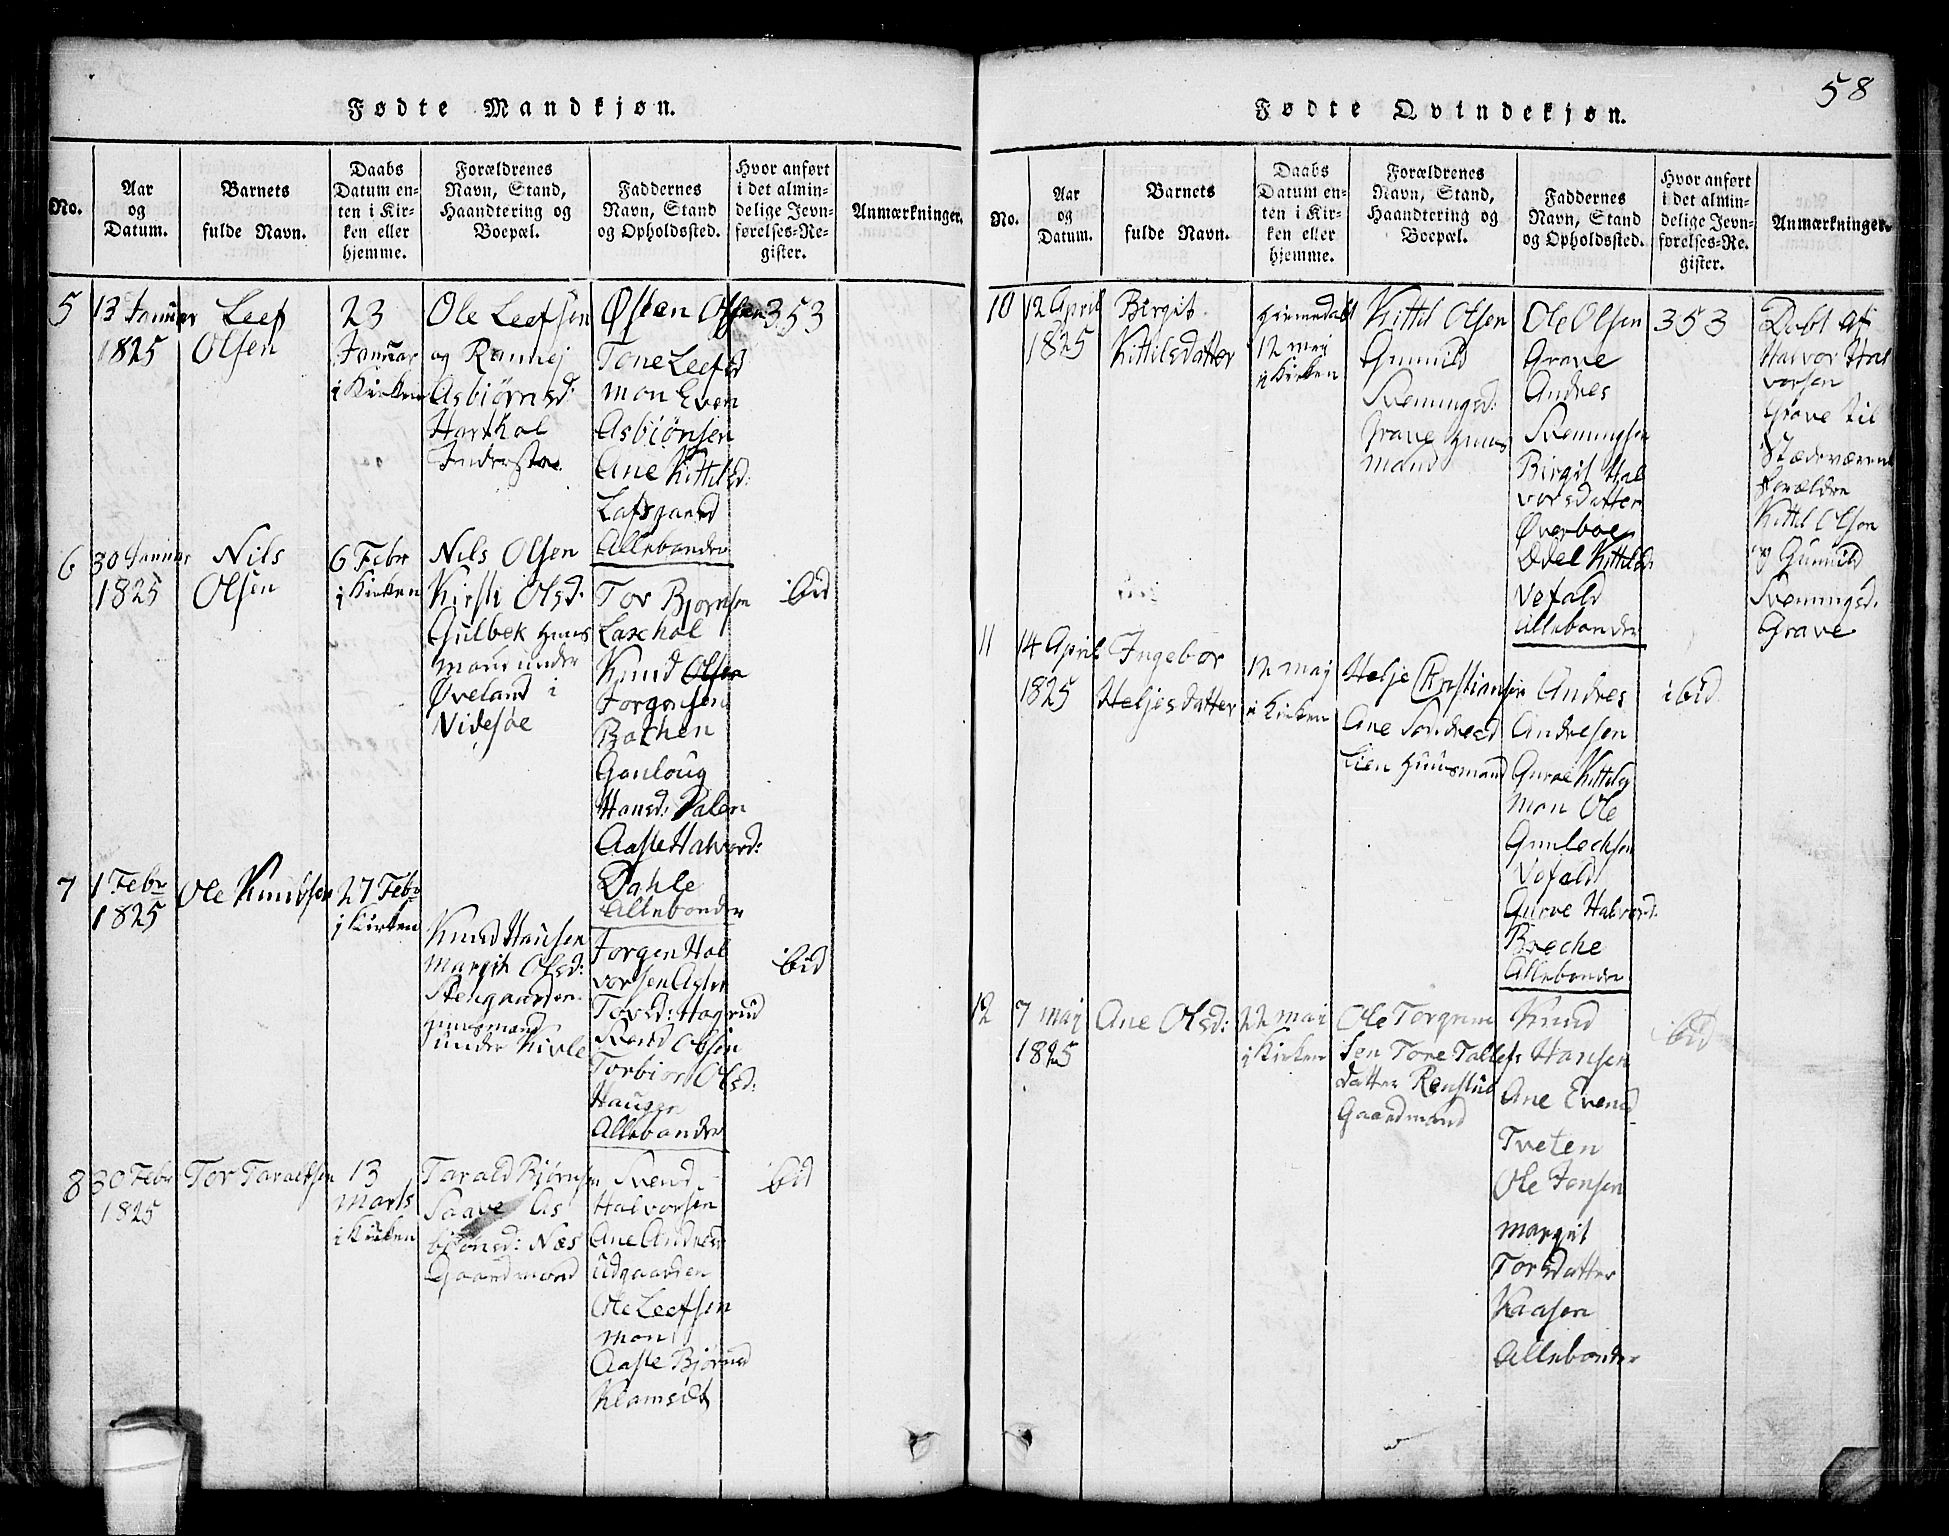 58
Fødte Mandkjøn.
No.
Aar
og
Datum.
Barnets
fulde Navn.
Daabs
Datum en-
ten i Kir-
ken eller
hjemme.
Forældrenes
Navn, Stand,
Haandtering og
Boepæl.
Faddernes
Navn, Stand
og Opholdssted.
Hvor anført
i det almin-
delige Jevn-
førelses-Re-
gister.
Anmærkninger.
5
13 Januar
1825
Leef
Olsen
23
Januar
i Kirken
Ole Leefsen
og Rannej
Asbiørnsd:
Hartkol
Østen Olsen
Tone Leefsd
mon Even
Asbiønsen
Ane Kittilsd:
Lafsgaard
Allebonder
353
6
30 Januar
1825
Nils
Olsen
6 Febr
i Kirken
Nils Olsen
Kirsti Olsd:
Gulbek Huus
mand under
Øveland i
Nidesøe
Tor Bjornsen
Laxhol
Knud Olsen
Jorgensen
Bachen
Gonloug
Hansd: Dalen
Aaste Halvord:
Dahle
Allebonder
ibid
7
1 Febr
1825
Ole Knudsen
27 Febr
i Kirken
Knud Hansen
Margit Olsd:
Stengaarden
Huusmand
under Kivle
Jorgen Hal
vorsen
Tovsd: Hagrud
Svend Olsen
Torbior Olsd:
Haugen
Allebonder
ibid
8
30 Febr
1825
Tor Taraldsen
13
Marts
i Kirken
Tarald Bjørnsen
Saave As
biønsd: Næs
Gaardmand
Svend
Halvorsen
Ane Andresd
Udgaarden
Ole Leefsen
mon
Aaste Bjørnsd
ibid
Fødte Qvindekjøn.
No.
Aar
og
Datum.
Barnets
fulde Navn.
Daabs
Datum en-
ten i Kir-
ken eller
hjemme.
Forældrenes
Navn, Stand,
Haandtering og
Boepæl.
Faddernes
Navn, Stand
og Opholdssted.
Hvor anført
i det almin-
delige Jevn-
førelses-Re-
gister.
Anmærkninger.
10
12 April
1825
Birgit
Kittilsdatter
Hiemedøbt
12 maj
i Kirken
Kittil Olsen
Gunnild
Svenungsd:
Grave Huus
mand
Ole Olsen
Grave
Andres
Svenungsen
Birgit Hal
vorsdatter
Øverboe
Kittilsd:
Vefald
Allebonder
353
Døbt af
Halvor Hal
vorsen
Grave til
Stædeværende
Forældre
Kittil Olsen
og Gunnild
Svenungsd.
Grave
11
14 April
1825
Ingebor
Heljesdatter
12 maj
i Kirken
Helje Christiansen
Ane Sondresd
Lien Huusmand
Andres
Andresen
Gurve Kittilsd
mon Ole
Gunlechsen
Vefald
Gurve Halvord:
Breche
Allebonder
ibid
12
7 maj
1825
Ane Olsd:
22 maj
i Kirken
Ole Torgrim
sen Tore Tallefs
datter
Gaardmand
Knud
Hansen
Ane Evensd
Tveten
Ole Jensen
Margit
Torsdatter
Kaasen
Allebonder
ibid